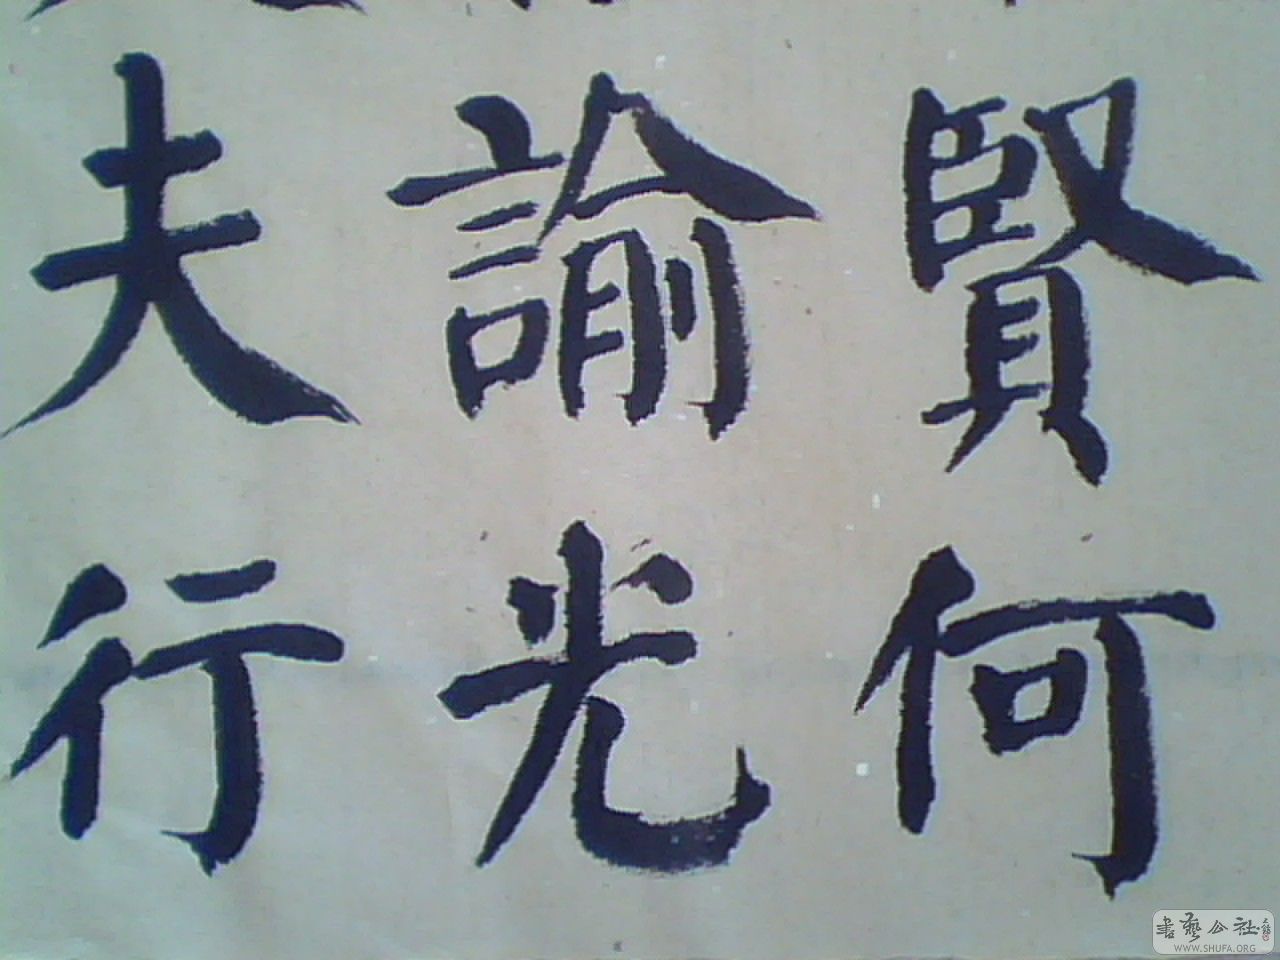 賢何
諭光
夫行
書藝公社
WWW.SHUFA.ORG